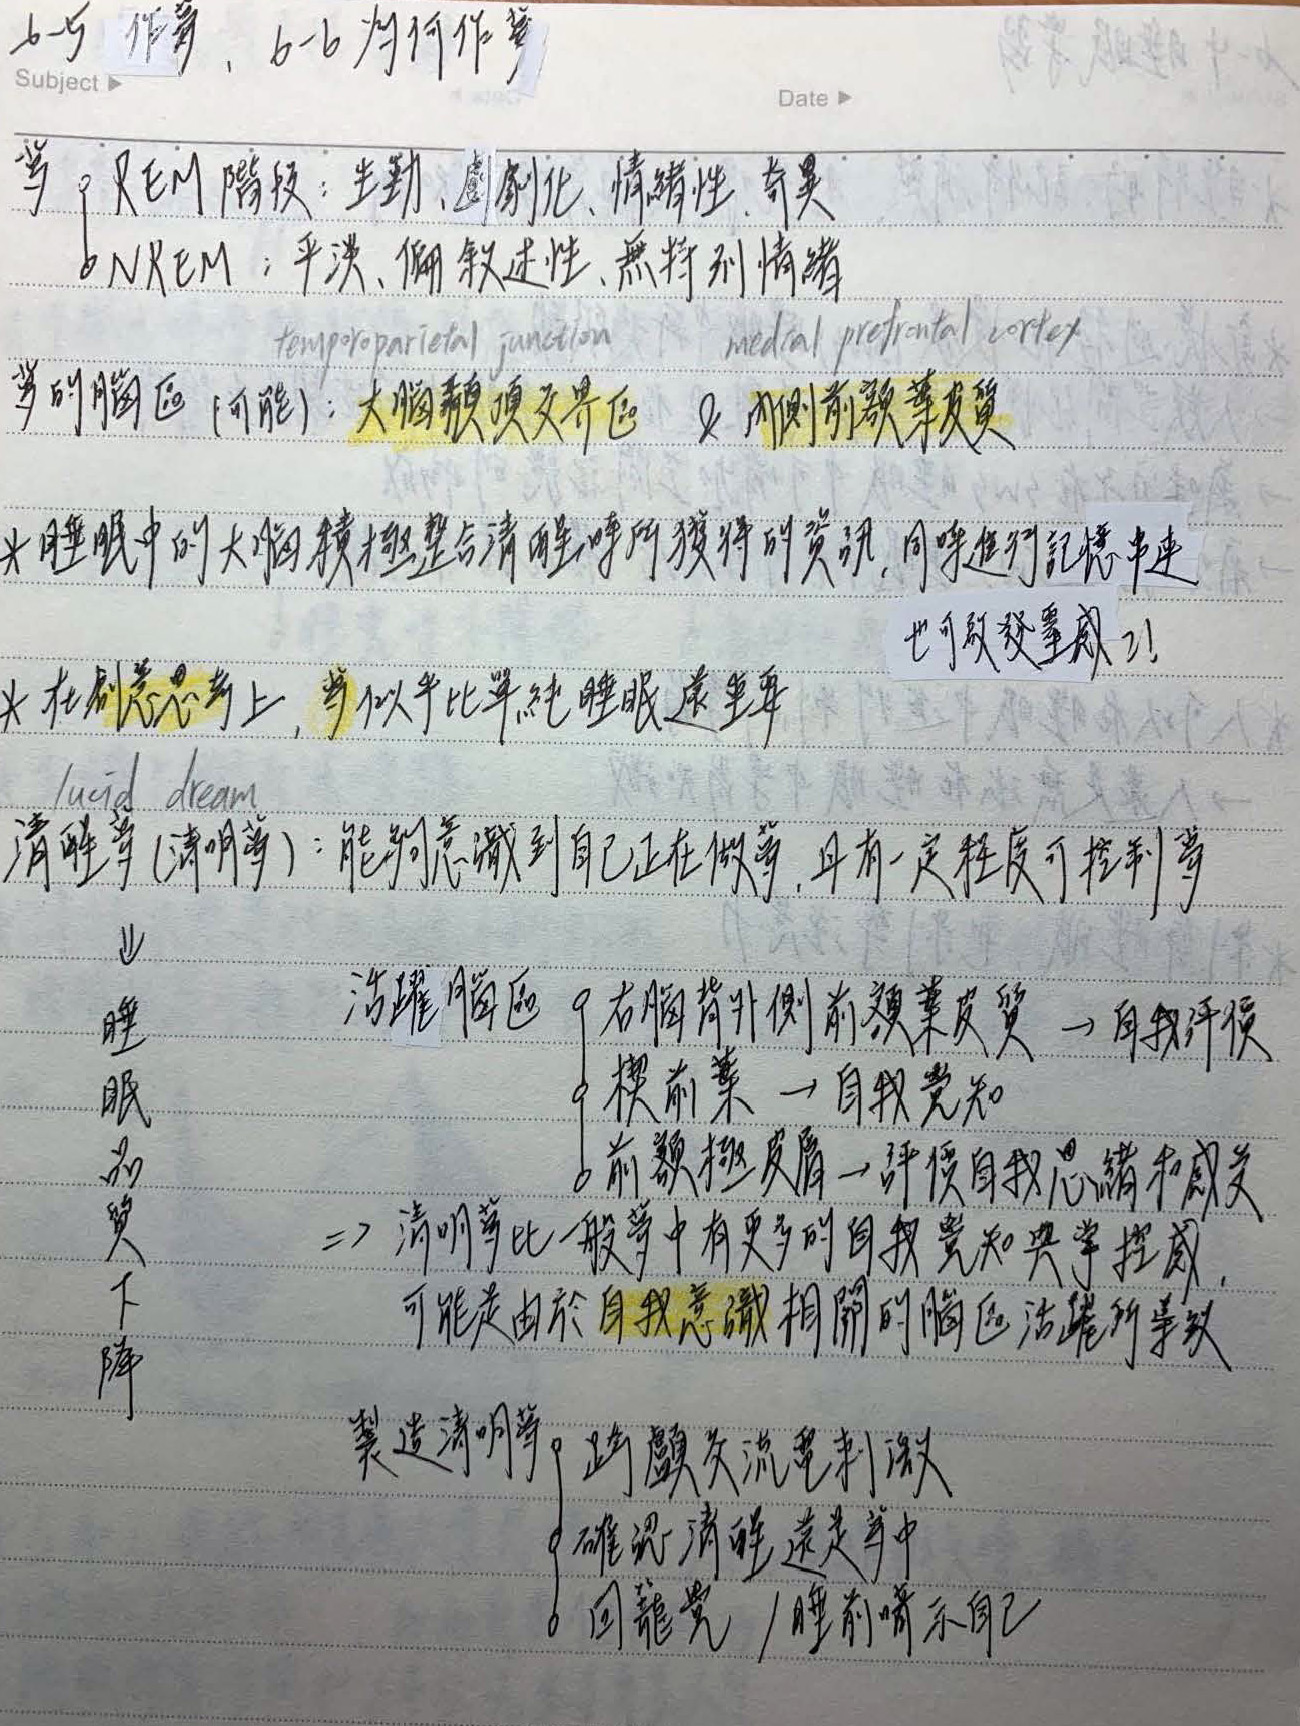 6-5 作夢、6-6 為何作夢
Subject ▶
Date ▶
夢 REM 階段：生動、戲劇化、情緒性、奇異
NREM：平淡、偏敘述性、無特別情緒
temporoparietal junction medial prefrontal cortex
夢的腦區（可能）：大腦顳頂交界區 & 內側前額葉皮質
* 睡眠中的大腦積極整合清醒時所獲得的資訊，同時進行記憶串連
也可啟發靈感?!
* 在創意思考上，夢似乎比單純睡眠還重要
lucid dream
清醒夢（清明夢）：能夠意識到自己正在做夢，且有一定程度可控制夢
↓
睡眠品質下降
活躍腦區 右腦背外側前額葉皮質 → 自我評價
楔前葉 → 自我覺知
前額極皮層 → 評價自我思緒和感受
=> 清明夢比一般夢中有更多的自我覺知與掌控感，
可能是由於自我意識相關的腦區活躍所導致
製造清明夢 跨顱交流電刺激
確認清醒還是夢中
回籠覺 / 睡前暗示自己